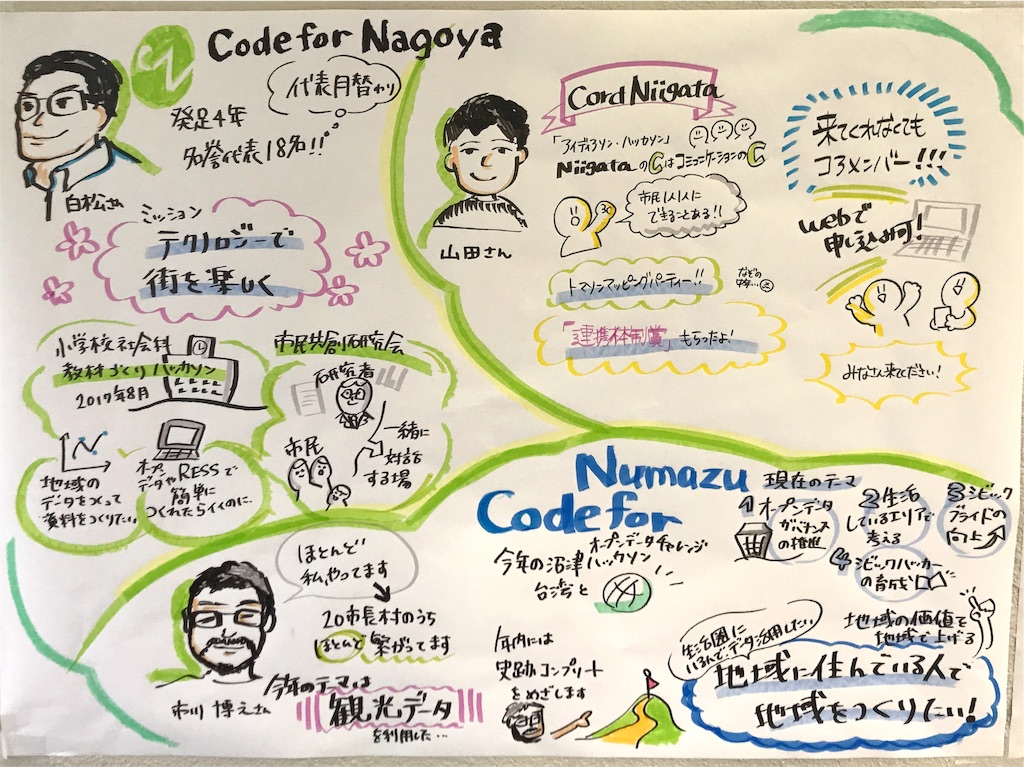 Code for Nagoya
代表月替わり
発足4年
名誉代表18名!!
白松さん
ミッション
テクノロジーで
街を楽しく
小学校社会科
教材づくりハッカソン
2017年8月
地域の
データをつかって
資料をつくりたい。
オープン
データやRESSで
簡単に
つくれたらイイのに
市民共創研究会
研究者
市民
一緒に
対話
する場
山田さん
Cord Niigata
「アイディアソン・ハッカソン」
NiigataのCはコミュニケーションのC
市民1人1人に
できることある!!
トマソンマッピングパーティー!!
などの
「連携体制賞」もらったよ!
来てくれなくても
コアメンバー!!!
webで
申し込み可!
みなさん来てください!
ほとんど
私、やってます
20市長村のうち
ほとんど繋がってます
市川 博之さん
今年のテーマは
観光データ
を利用した…
Numazu
Code for
今年の沼津
オープンデータチャレンジ
ハッカソン
台湾と
年内には
史跡コンプリート
をめざします
現在のテーマ
1 オープンデータ
ガバナンス
の推進
2 生活
しているエリアで
考える
3 シビック
プライドの
向上
4 シビックハッカー
の育成
地域の価値を
地域で上げる
生活圏に
いるんで、データ活用したい。
地域に住んでいる人で
地域をつくりたい!